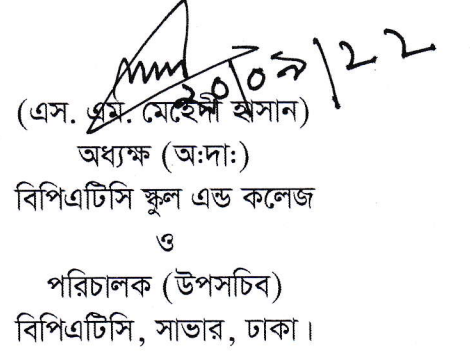 ২০/০৯/২২
(এস. এম. মেহেদী হাসান)
অধ্যক্ষ (অ:দা:)
বিপিএটিসি স্কুল এন্ড কলেজ
ও
পরিচালক (উপসচিব)
বিপিএটিসি, সাভার, ঢাকা।